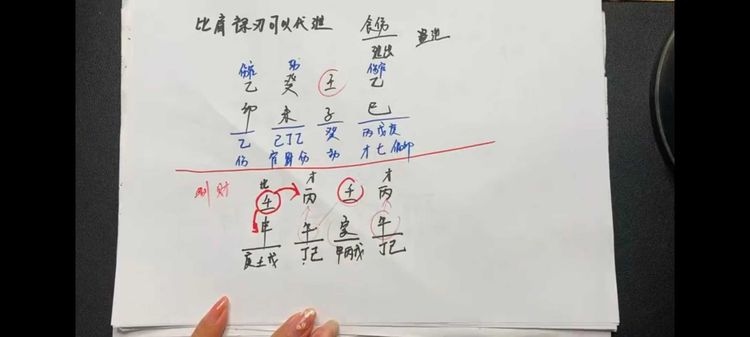 比肩 禄刃可以代进 食伤
进出 管道
伤官 劫 伤官
乙 癸 壬 乙
卯 未 子 巳
乙 己丁乙 癸 丙戊庚
伤 官财伤 劫 才七偏印
比 才 才
财 壬 丙 壬 丙
申 午 亥 午
丁己 甲丙戊 丁己